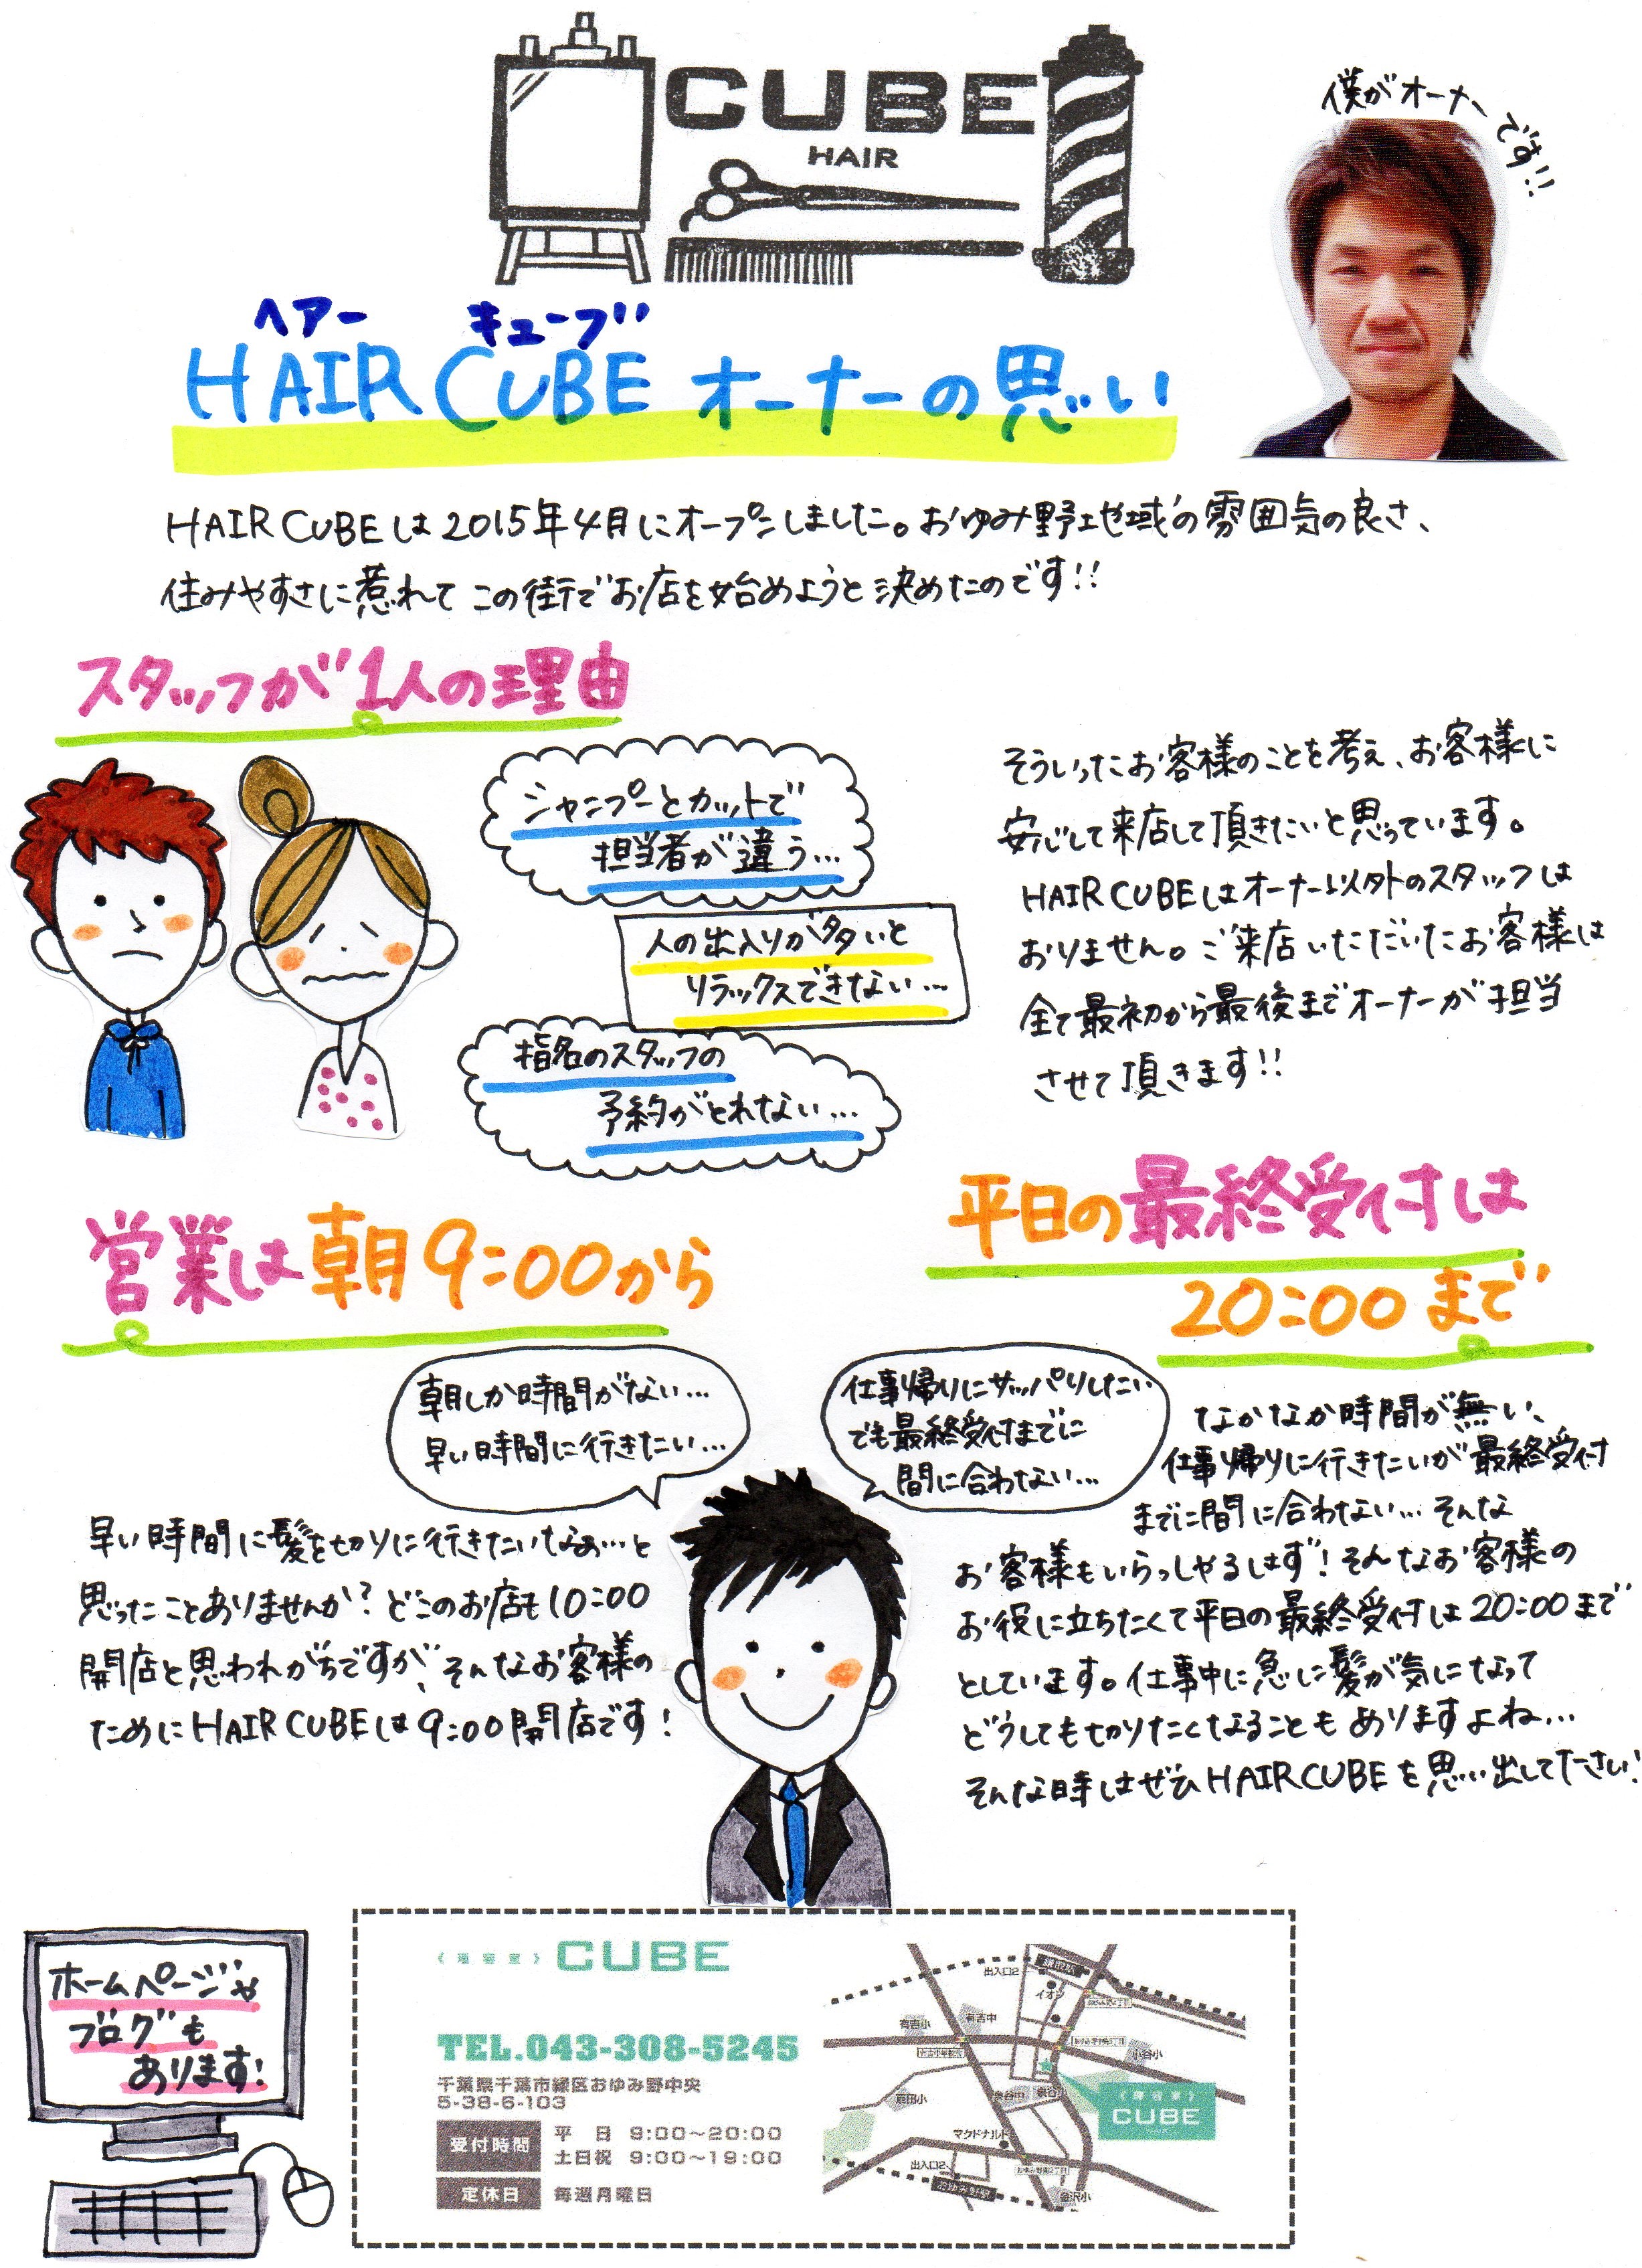 CUBE
HAIR
僕がオーナーです!!
ヘアー キューブ
HAIR CUBE オーナーの思い
HAIR CUBEは2015年4月にオープンしました。おゆみ野地域の雰囲気の良さ、
住みやすさに惹れて この街でお店を始めようと決めたのです!!
スタッフが1人の理由
シャンプーとカットで
担当者が違う…
人の出入りが多いと
リラックスできない…
指名のスタッフの
予約がとれない…
そういったお客様のことを考え、お客様に
安心して来店して頂きたいと思っています。
HAIR CUBEはオーナー以外のスタッフは
おりません。ご来店いただいたお客様は
全て最初から最後までオーナーが担当
させて頂きます!!
営業は朝9:00から
朝しか時間がない…
早い時間に行きたい…
早い時間に髪を切りに行きたいなぁ…と
思ったことありませんか?どこのお店も10:00
開店と思われがちですが、そんなお客様の
ためにHAIR CUBEは9:00開店です!
平日の最終受付は
20:00まで
仕事帰りにサッパリしたい
でも最終受付までに
間に合わない…
なかなか時間が無い、
仕事帰りに行きたいが最終受付
までに間に合わない…そんな
お客様もいらっしゃるはず!そんなお客様の
お役に立ちたくて平日の最終受付は20:00まで
としています。仕事中に急に髪が気になって
どうしても切りたくなることもありますよね…
そんな時はぜひHAIR CUBEを思い出して下さい!
ホームページや
ブログも
あります!
《理容室》CUBE
TEL.043-308-5245
千葉県千葉市緑区おゆみ野中央
5-38-6-103
受付時間 平 日 9:00〜20:00
土日祝 9:00〜19:00
定休日 毎週月曜日
鎌取駅
出入口2
イオン
有吉小
有吉中
小谷小
泉谷中
泉谷小
扇田小
《理容室》
CUBE
HAIR
マクドナルド
出入口2
おゆみ野駅
金沢小